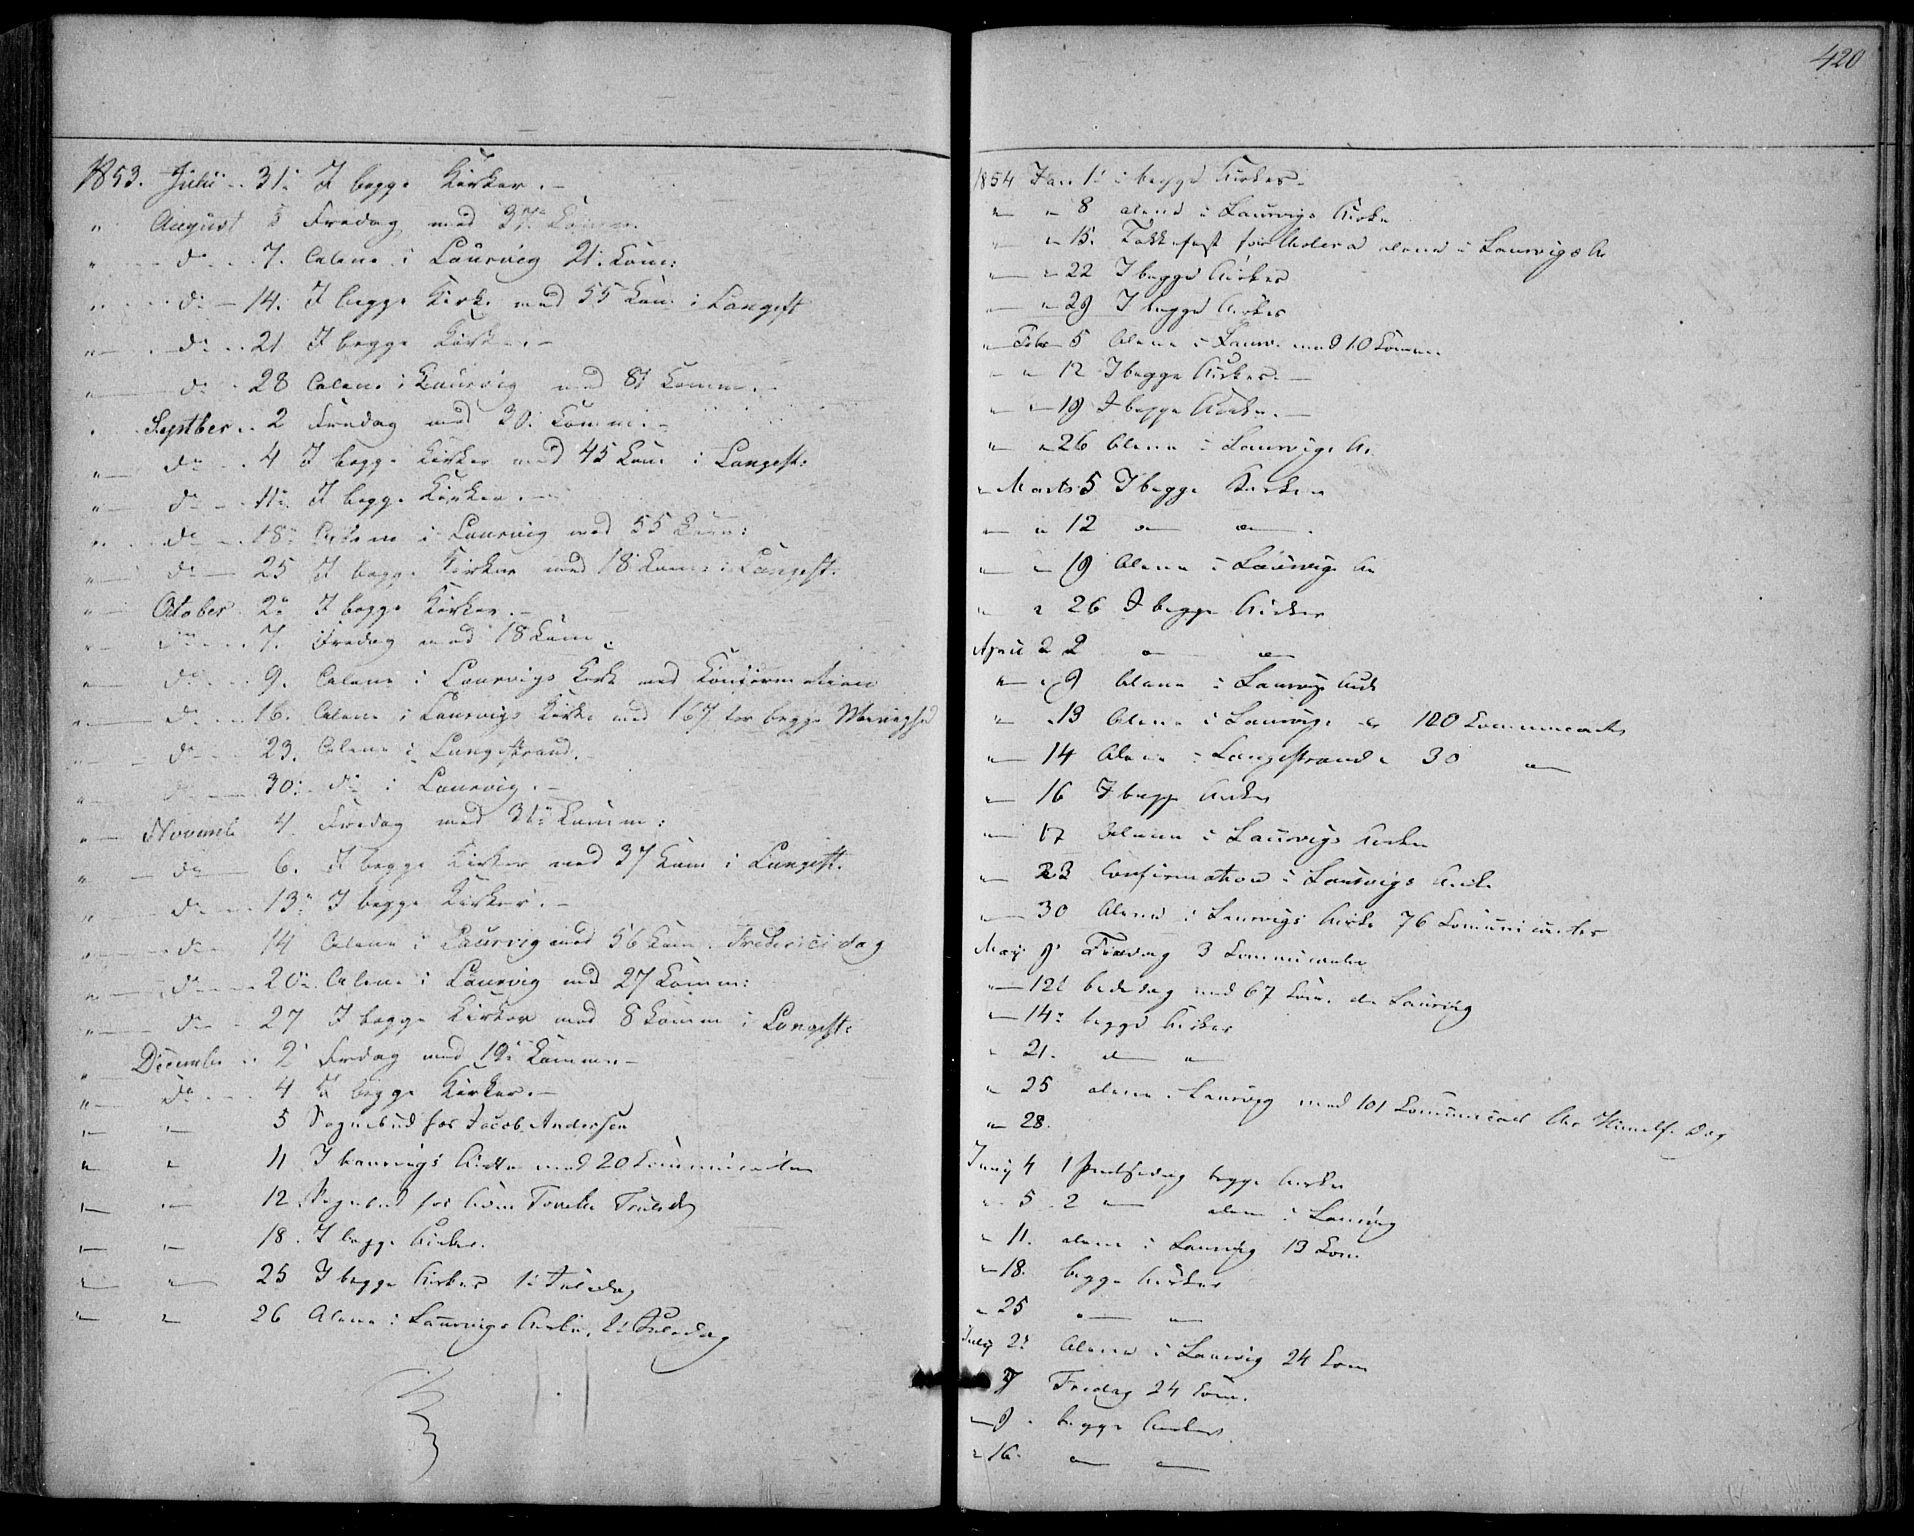 1853. Julii .. 31: I begge Kirker. –
" August 5 Fredag med 37: Komm.
" — do .. 7. Alene i Laurvig 21: Kom:
" — do — 14. I begge Kirke med 55 Kom i Langest
" — do .. 21 I begge Kirker. –
" — do . 28 Alene i Laurvig med 81 Komm. –
. Septber .. 2 Fredag med 30: Komm. –
" — do .. 4 I begge Kirker med 45 Kom i Langest:
" — do – 11: I begge Kirker. –
" . do – 18: Alene i Laurvig med 55 Kom:
" — do — 25 I begge Kirker med 18 Kom: i Langest.
" — October 2: I begge Kirker. –
" — do .. 7. Fredag med 18 Kom.
" — do .. 9. Alene i Laurvigs Kirke med Konfirmation
" — do .. 16. Alene i Laurvigs Kirke med 167 for begge Menighed
" — do .. 23. Alene i Langestrand. –
" — do — 30: do i Laurvig. –
" — Novemb 4. Fredag med 31: Komm:
" — do — 6. I begge Kirker med 37 Kom i Langest.
" — do — 13: I begge Kirker. –
" — do — 14 Alene i Laurvig med 56 Kom. Fridericidag
" — do — 20: Alene i Laurvig med 27 Komm:
" — do – 27 I begge Kirker med 8 Komm i Langest:
" Decembr .. 2 Fredag med 19: Komm. –
" — do .. 4 I begge Kirker. –
" — " 5 Sognebud for Jacob Andersen
" — " 11 I Laurvigs Kirke med 20 Communicanter
" — " 12 Sognebud for
" — " 18. I begge Kirker.
" — " 25 I begge Kirker 1: Juledag
" — " 26 Alene i Laurvigs Kirke, 2: Juledag
420
1854 Jan 1: i begge Kirker. –
" — " 8 alene i Laurvigs Kirke
" — " 15. Takkefest for Cholera alene i Laurvigs K
" — " 22 I begge Kirker
" — " 29 I begge Kirker
" Febr 5 Alene i Laurv. med 10 Comm.
" — " 12 I begge Kirker. –
" — " 19 I begge Kirker. –
" — " 26 Alene i Laurvigs K.
" Marts 5 I begge Kirker
" — " 12 " — " — .
" — " 19 Alene i Laurvigs K
" — " 26 I begge Kirker
April 2 " — " —
" — " 9 Alene i Laurvigs Kirk
" — " 13 Alene i Laurvigs K 120 Communicanter
" — 14 Alene i Langestrand K 30 " —
" — 16 I begge Kirker
" — 17 Alene i Laurvigs Kirke
" — 23 Confirmation i Laurvigs Kirke
" — 30 Alene i Laurvigs Kirke 76 Communicanter
May 9 Fredag 3 Communicanter
" — 12t bededag med 67 Com. do Laurvig
" — 14: begge Kirker
" 21. " — " —
" 25 alene i Laurvig med 101 Communicant Chr Himelf. Dag
" 28.
Juny 4 1 Pintsedag begge Kirker
" 5 . 2 " — alene i Laurvig
" 11. alene i Laurvig 13 Com
" 18. begge Kirker
" 25 " — " —
July 2: Alene i Laurvig 24 Com
" 7 Fredag 24 Com.
" 9 . begge Kirker
" 16. " — " —